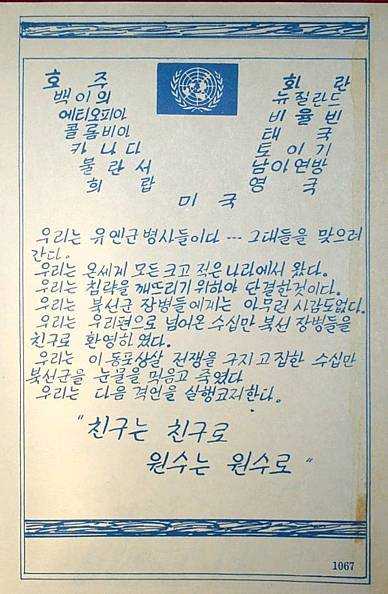 호 주 화 란
백이의 뉴질란드
에티오피아 비율빈
콜롬비아 태국
카나다 토이기
불란서 남아연방
희랍 영국
미국
우리는 유엔군 병사들이다 --- 그대들을 맞으러
간다.
우리는 온세계 모든 크고 적은 나라에서 왔다.
우리는 침략을 깨뜨리기 위하야 단결한것이다.
우리는 북선군 장병들에게는 아무런 사감도없다.
우리는 우리편으로 넘어온 수십만 북선 장병들을
친구로 환영하였다.
우리는 이 동포상살 전쟁을 구지고집한 수십만
북선군을 눈물을 먹음고 죽였다
우리는 다음 격언을 실행코저한다.
"친구는 친구로
원수는 원수로"
1067